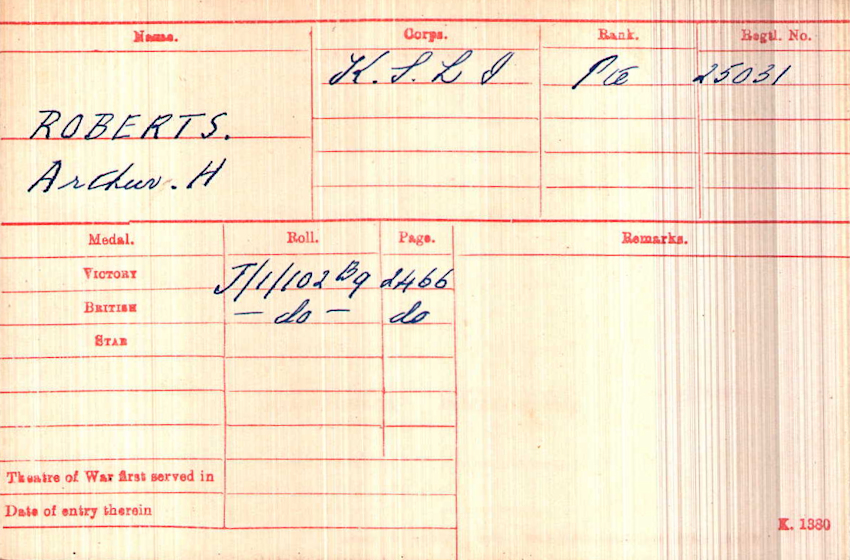 Name. Corps. Rank. Regtl. No.
K.S.L I Pte 25031
ROBERTS.
Arthur. H
Medal. Roll. Page. Remarks.
VICTORY J/1/102 B9 2466
BRITISH — do — do
STAR
Theatre of War first served in
Date of entry therein
K. 1380